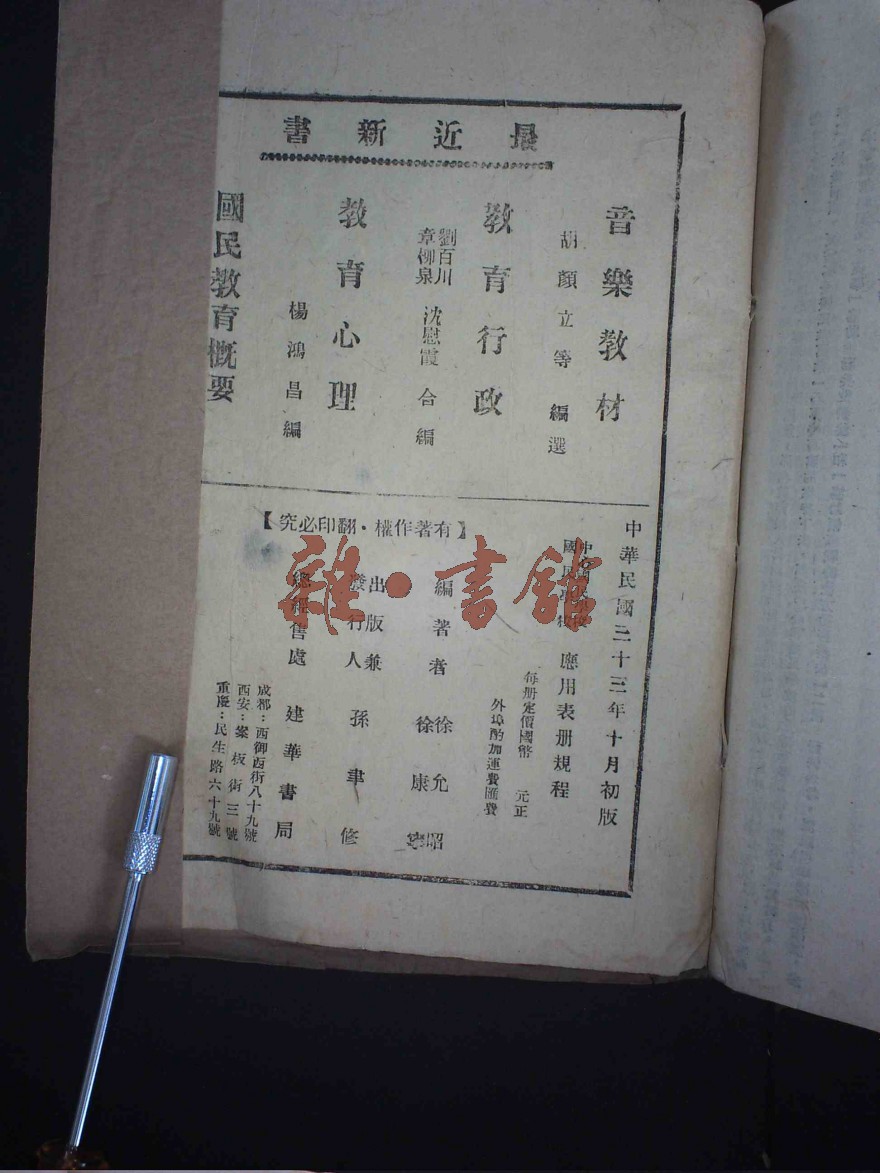 最近新書
音樂教材
胡顏立等編選
教育行政
劉百川
章柳泉
沈慰霞合編
教育心理
楊鴻昌編
國民教育概要
中華民國三十三年十月初版
國民學校
應用表册規程
每册定價國幣 元正
外埠酌加運費匯費
【有著作權·翻印必究】
編著者 徐允昭
徐康寧
出版兼
發行人 孫聿修
總經售處 建華書局
成都：西御西街八十九號
西安：案板街三號
重慶：民生路六十九號
雜·書館